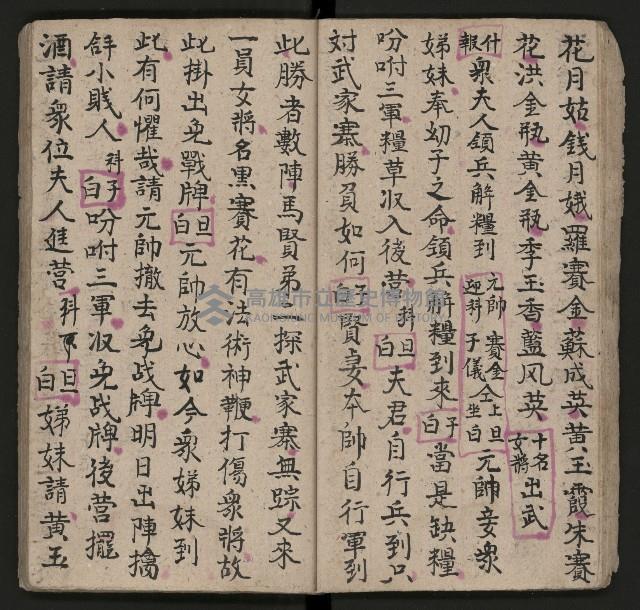 花月姑錢月娥羅賽金蘇成英黃玉霞朱賽
花洪金瓶黃金瓶季玉香藍风英十名女將出武
什報衆夫人領兵解糧到元帥賽金上旦迎科子儀仝坐白元帥妾衆
娣妹奉幼子之命領兵解糧到來子白當是缺糧
吩咐三軍糧草收入後營科旦白夫君自行兵到只
対武家寨勝負如何子白賢妻本帥自行軍到
此勝者數陣馬賢弟一探武家寨無踪又來
一員女將名黑賽花有法術神鞭打傷衆將故
此掛出免戰牌旦白元帥放心如今衆娣妹到
此有何懼哉請元帥撤去免战牌明日出陣擒
小賎人科子白吩咐三軍收免战牌後營擺
酒請衆位夫人進营科下旦白娣妹請黃玉
高雄市立歷史博物館
KAOHSIUNG MUSEUM OF HISTORY